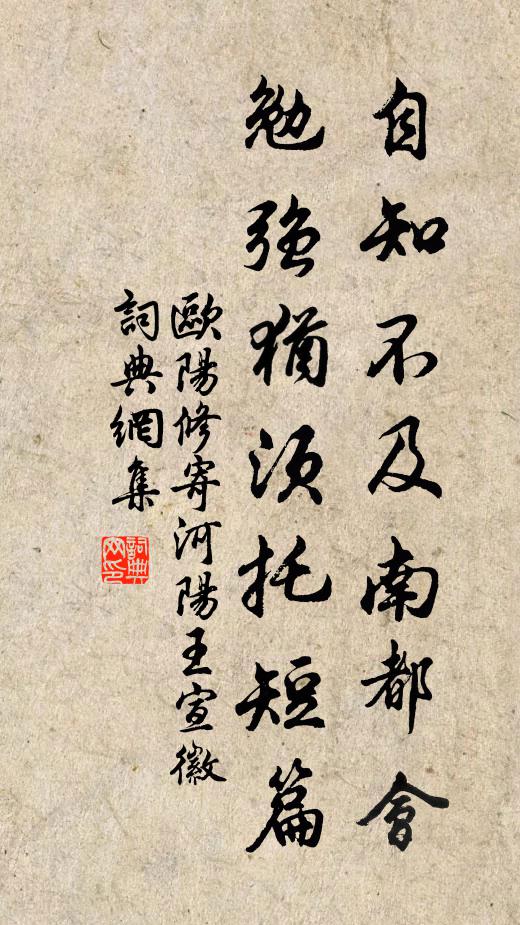 自知不及南都會
勉強猶須托短篇
歐陽修寄河陽王宣徽
詞典網集
詞典
网印